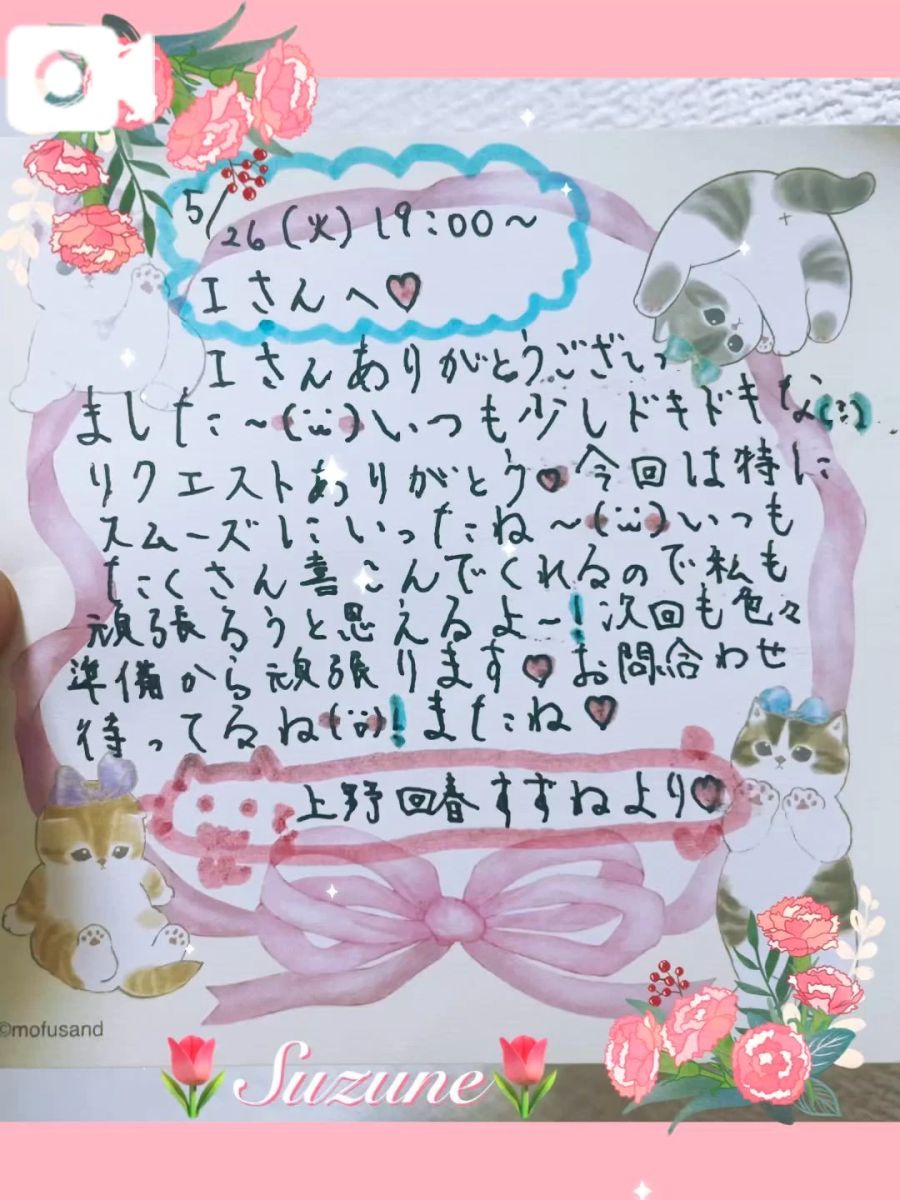 5/26(火)19:00～
Iさんへ♡
Iさんありがとうござい
ました～(¨̮)いつも少しドキドキな(¨̮)
リクエストありがとう♡今回は特に
スムーズにいったね～(¨̮)いつも
たくさん喜こんでくれるので私も
頑張ろうと思えるよ～!次回も色々
準備から頑張ります♡お問合わせ
待ってるね(¨̮)!またね♡
上野回春すずねより♡
©mofusand
Suzune